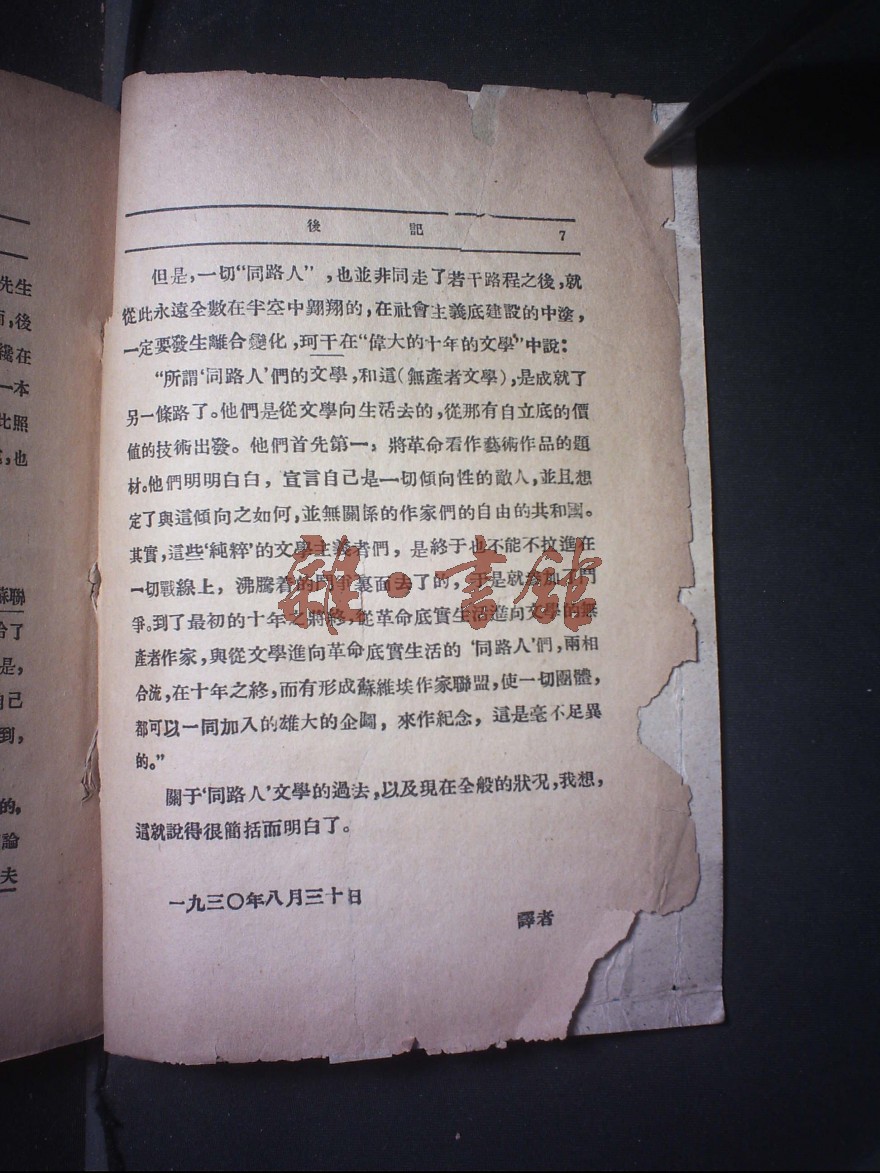 先生
後
纔在
一本
比照
也
蘇聯
給了
是，
自己
到，
的。
論
夫
後 記 7
但是，一切“同路人”，也並非同走了若干路程之後，就
從此永遠全數在半空中翱翔的，在社會主義底建設的中塗，
一定要發生離合變化，珂干在“偉大的十年的文學”中說：
“所謂‘同路人’們的文學，和這（無產者文學），是成就了
另一條路了。他們是從文學向生活去的，從那有自立底的價
值的技術出發。他們首先第一，將革命看作藝術作品的題
材。他們明明白白，宣言自己是一切傾向性的敵人，並且想
定了與這傾向之如何，並無關係的作家們的自由的共和國。
其實，這些‘純粹’的文學主義者們，是終于也不能不拉進在
一切戰線上，沸騰着的鬥爭裏面去了的，于是就參加了鬥
爭。到了最初的十年之將終，從革命底實生活進向文學的無
產者作家，與從文學進向革命底實生活的‘同路人’們，兩相
合流，在十年之終，而有形成蘇維埃作家聯盟，使一切團體，
都可以一同加入的雄大的企圖，來作紀念，這是毫不足異
的。”
關于‘同路人’文學的過去，以及現在全般的狀況，我想，
這就說得很簡括而明白了。
一九三〇年八月三十日
譯者
雜·書館